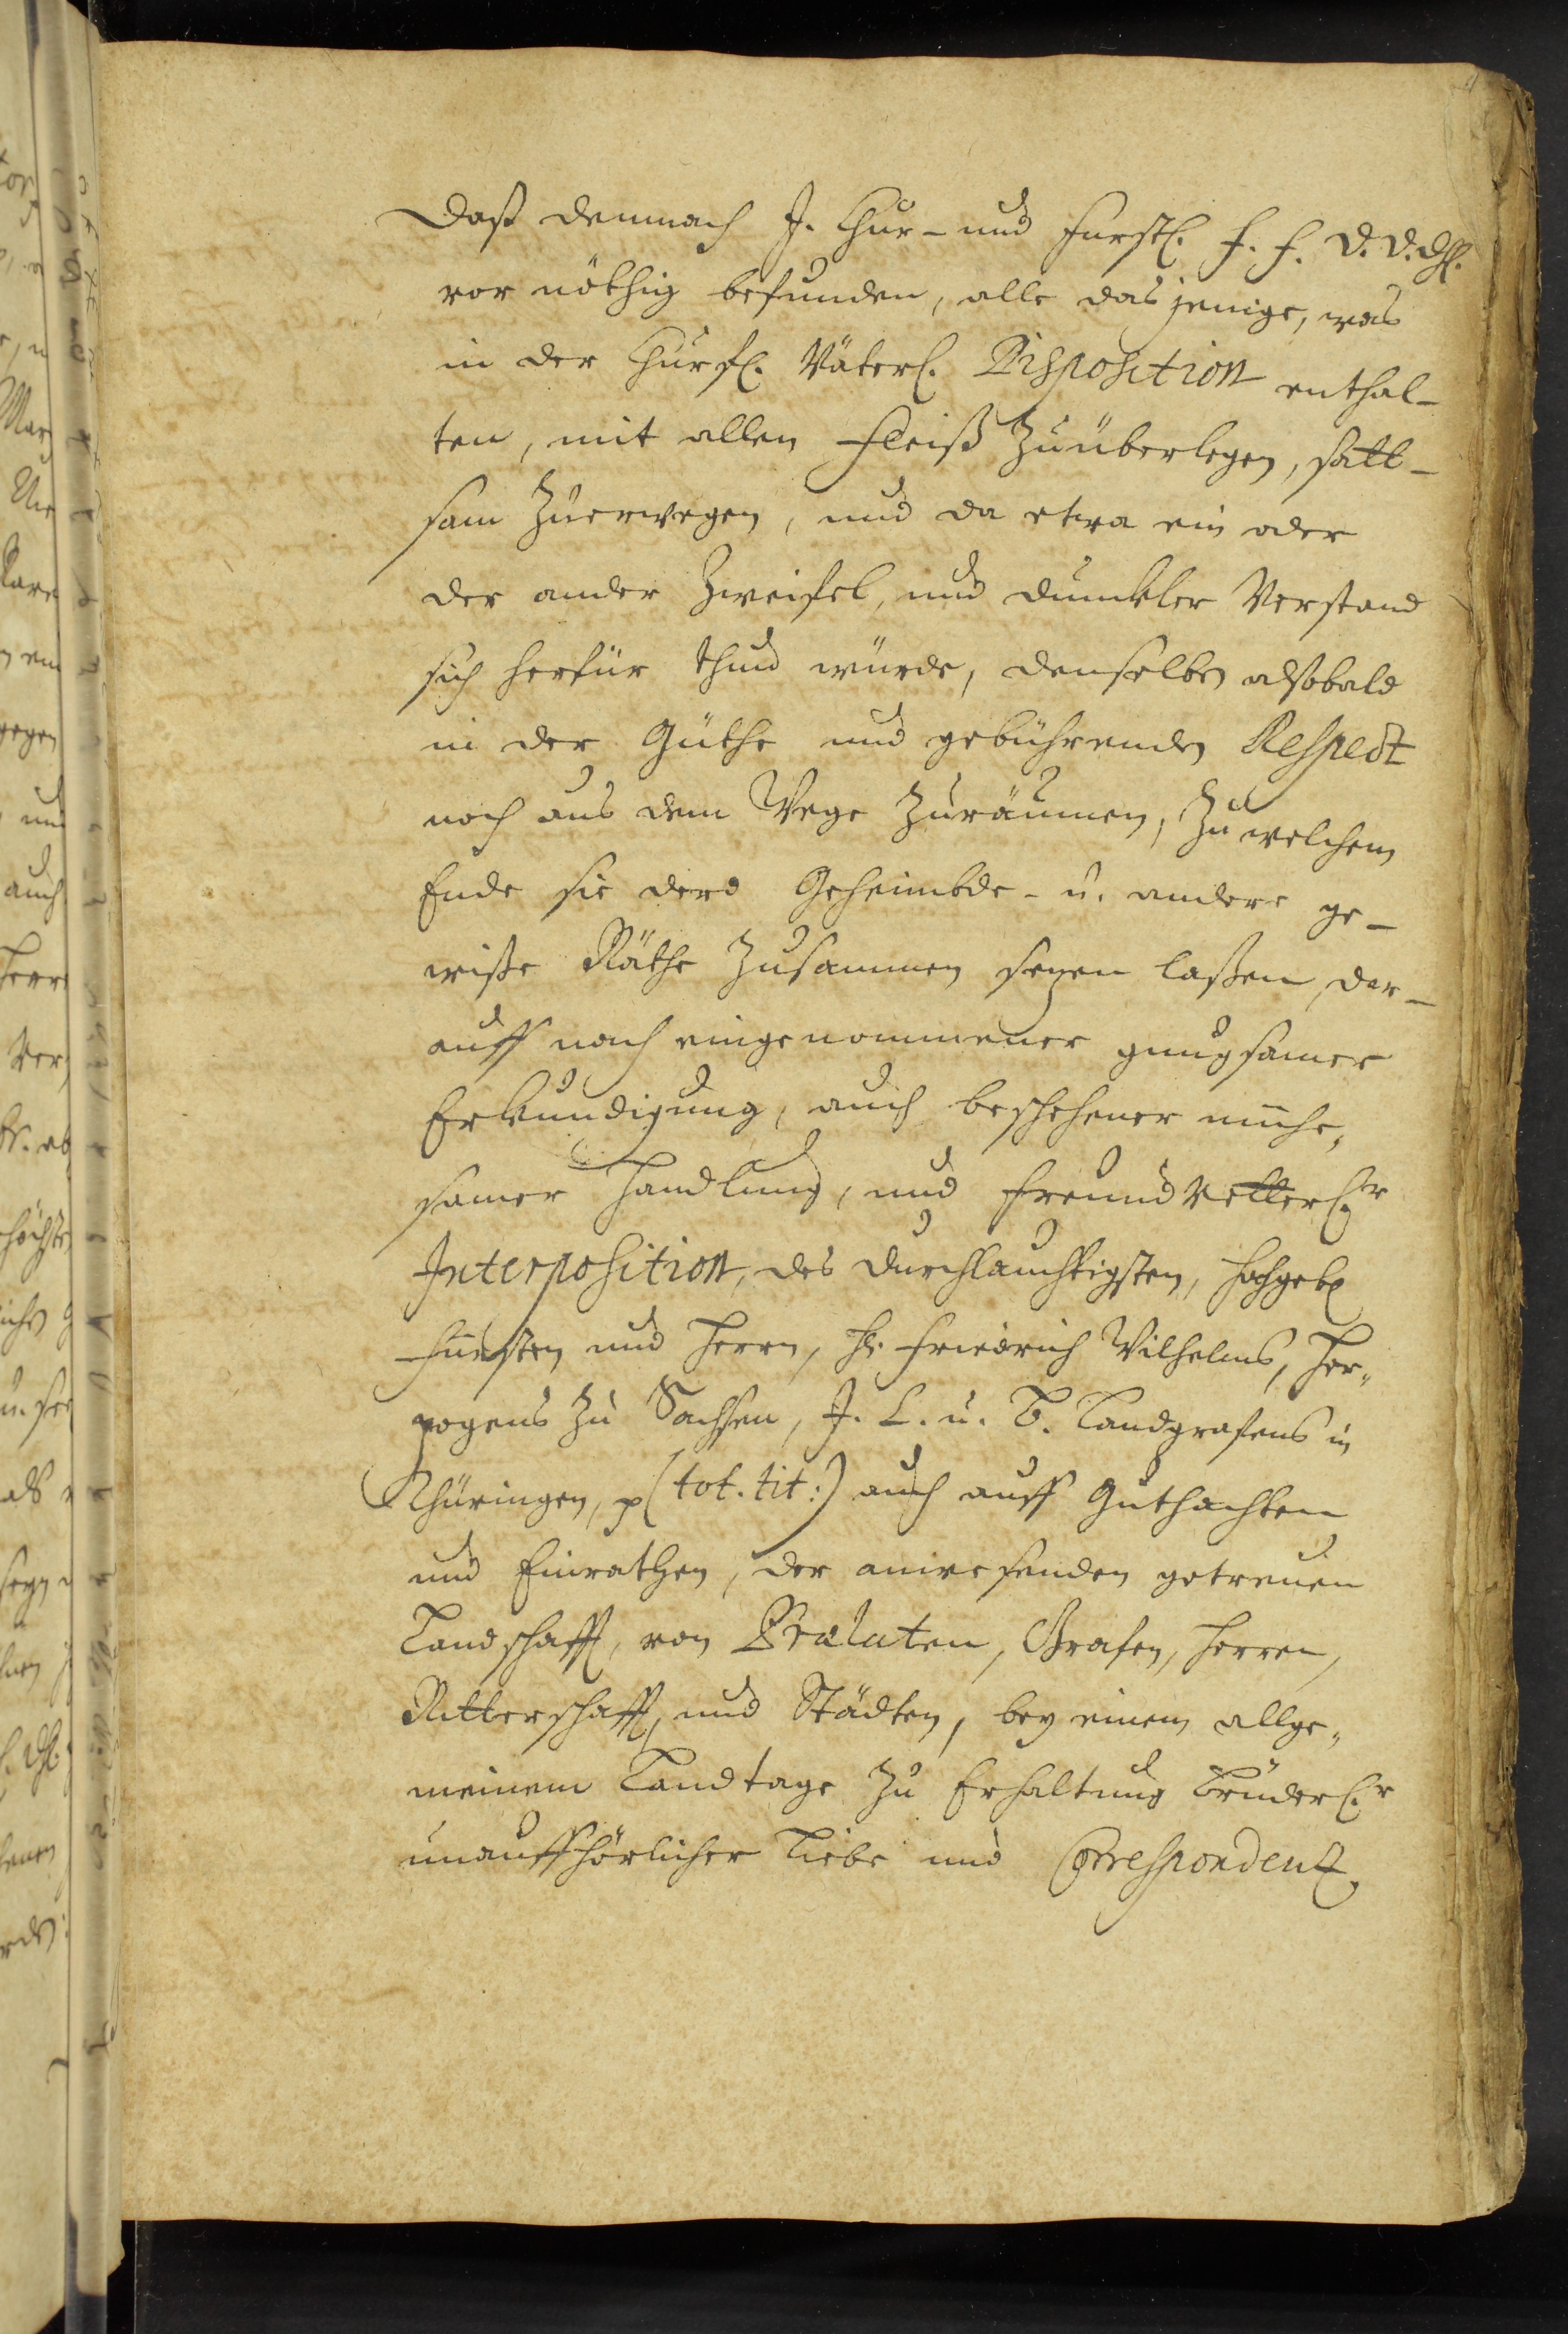 Daß demnach J. Chur- und Fürstl. F. F. D. D. Dhl.
vor nöthig befunden, alle das jenige, was
in der Churfl. Väterl. Disposition enthal-
ten, mit allen Fleiß zuüberlegen, satt-
sam zuerwegen, und da etwa ein oder
der ander Zweifel, und dunckler Verstand
sich herfür thun würde, denselben alsobald
in der Güthe und gebührenden Respect
noch aus dem Wege zuräumen, zu welchem
Ende sie dero Geheimbde- u. andere ge-
wiße Räthe zusammen sezen laßen, dar-
auff nach eingenommener gnugsamer
Erkundigung, auch beschehener mühe„
samer Handlung, und freund vetterl.r
Interposition, des durchlauchtigsten, hochgeb.
Fürsten und Herrn, Hr. Friedrich Wilhelms, Her„
zogens zu Sachsen, J. C. u. B. Landgrafens in
Thüringen, p (tot. tit:) auch auff Guthachten
und Einrathen, der anwesenden getreuen
Landschafft, von Prælaten, Grafen, Herren,
Ritterschafft, und Städten, bey einem allge„
meinem Landtage zu Erhaltung Brüderl.r
unauffhörlicher Liebe und Correspondentz,